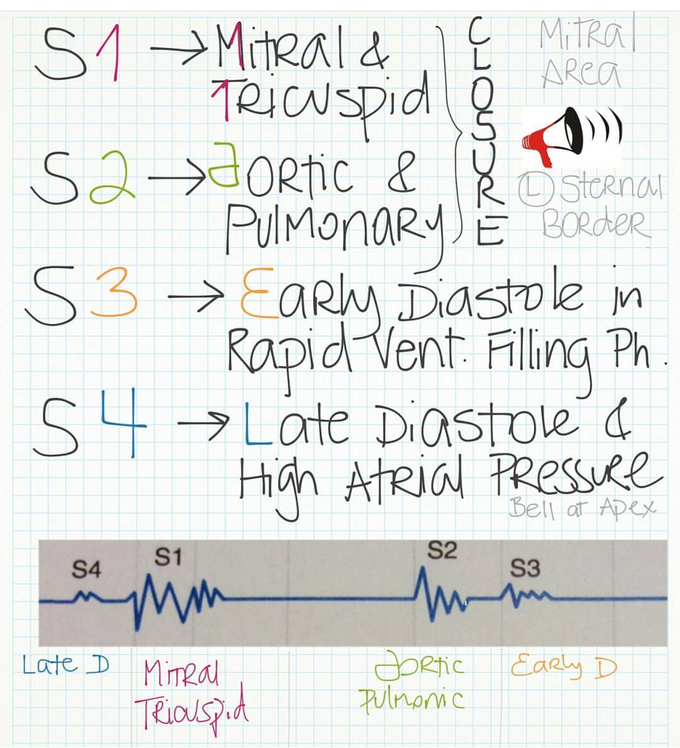 S1 → Mitral &
Tricuspid
CLOSURE
Mitral
Area
S2 → aortic &
Pulmonary
Ⓛ Sternal
Border
S3 → Early Diastole in
Rapid Vent. Filling Ph.
S4 → Late Diastole &
High Atrial Pressure
Bell at Apex
S4 S1 S2 S3
Late D Mitral aortic Early D
Tricuspid Pulmonic